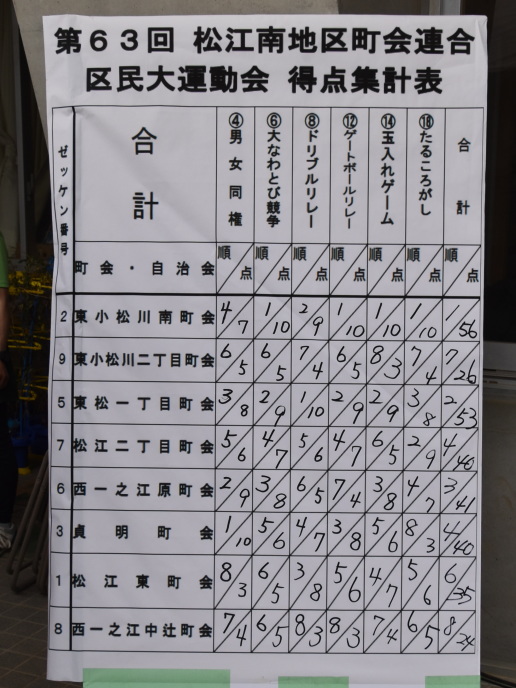 第６３回 松江南地区町会連合
区民大運動会 得点集計表
ゼッケン番号 合計 ④男女同権 ⑥大なわとび競争 ⑧ドリブルリレー ⑫ゲートボールリレー ⑭玉入れゲーム ⑱たるころがし 合計
町会・自治会 順/点 順/点 順/点 順/点 順/点 順/点 順/点
2 東小松川南町会 4/7 1/10 2/9 1/10 1/10 1/10 1/56
9 東小松川二丁目町会 6/5 6/5 7/4 6/5 8/3 7/4 7/26
5 東松一丁目町会 3/8 2/9 1/10 2/9 2/9 3/8 2/53
7 松江二丁目町会 5/6 4/7 5/6 4/7 6/5 2/9 4/40
6 西一之江原町会 2/9 3/8 6/5 7/4 3/8 4/7 3/41
3 貞明町会 1/10 5/6 4/7 3/8 5/6 8/3 4/40
1 松江東町会 8/3 6/5 3/8 5/6 4/7 5/6 6/35
8 西一之江中辻町会 7/4 6/5 8/3 8/3 7/4 6/5 8/24